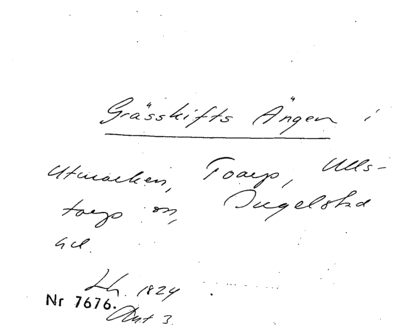 Grässkifts Ängen i
Utmarken, Toarp, Ulls-
torp sn, Ingelstad
hd.
Lh. 1824
Nr 7676. Akt 3.